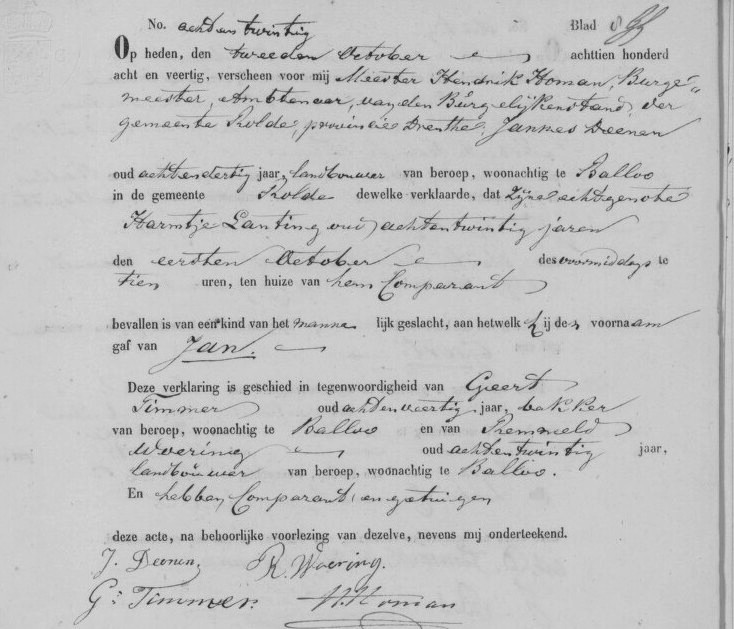 No. achtentwintig Blad
Op heden, den tweeden October achttien honderd
acht en veertig, verscheen voor mij Meester Hendrik Homan, Burge-
meester, Ambtenaar, van den Burgelijkenstand, der
gemeente Rolde, provincie Drenthe, Jannes Deenen
oud achtendertig jaar, landbouwer van beroep, woonachtig te Balloo
in de gemeente Rolde dewelke verklaarde, dat Zijne echtgenote
Harmtje Lanting oud achtentwintig jaren
den eersten October des voormiddags te
tien uren, ten huize van hem Comparant
bevallen is van een kind van het manne lijk geslacht, aan hetwelk hij den voornaam
gaf van Jan.
Deze verklaring is geschied in tegenwoordigheid van Geert
Timmer oud achtenveertig jaar, bakker
van beroep, woonachtig te Balloo en van Remmeld
Woering oud achtentwintig jaar,
landbouwer van beroep, woonachtig te Balloo.
En hebben Comparant en getuigen
deze acte, na behoorlijke voorlezing van dezelve, nevens mij onderteekend.
J. Deenen. R. Woering.
G. Timmer. H. Homan